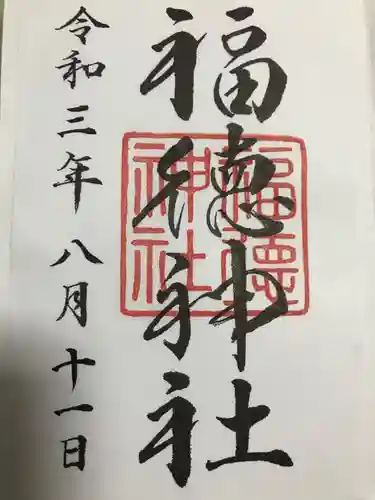 福徳神社
福徳神社
令和三年八月十一日